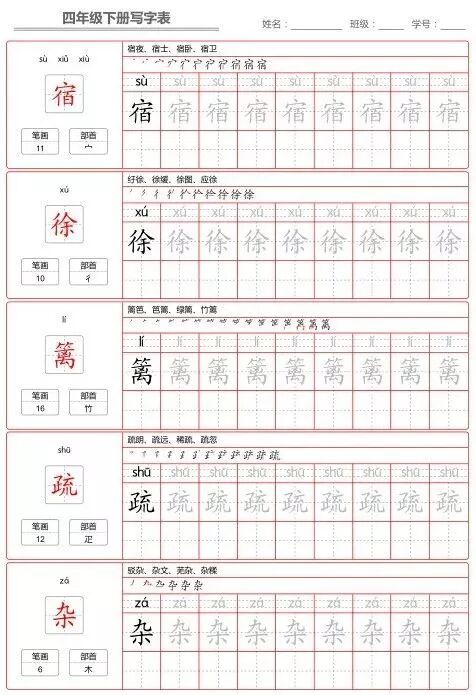 四年级下册写字表
姓名：__________ 班级：____ 学号：____
sù xiǔ xiù
宿
笔画 部首
11 宀
宿夜、宿士、宿卧、宿卫
sù sù sù sù sù sù sù sù sù
宿 宿 宿 宿 宿 宿 宿 宿 宿
xú
徐
笔画 部首
10 彳
纡徐、徐缓、徐图、应徐
xú xú xú xú xú xú xú xú xú
徐 徐 徐 徐 徐 徐 徐 徐 徐
lí
篱
笔画 部首
16 竹
篱笆、笆篱、绿篱、竹篱
lí lí lí lí lí lí lí lí lí
篱 篱 篱 篱 篱 篱 篱 篱 篱
shū
疏
笔画 部首
12 疋
疏朗、疏远、稀疏、疏忽
shū shū shū shū shū shū shū shū shū
疏 疏 疏 疏 疏 疏 疏 疏 疏
zá
杂
笔画 部首
6 木
驳杂、杂文、芜杂、杂糅
zá zá zá zá zá zá zá zá zá
杂 杂 杂 杂 杂 杂 杂 杂 杂